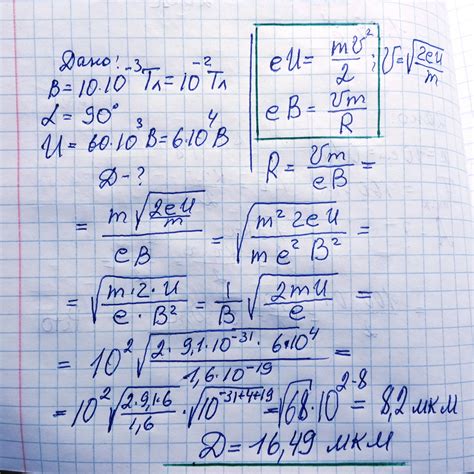 Дано:
B = 10·10⁻³ Тл = 10⁻² Тл
α = 90°
U = 60·10³ В = 6·10⁴ В
D - ?
eU = mv²/2 ; v = √(2eU/m)
eB = vm/R
R = vm/eB =
= m√(2eU/m) / eB = √(m² 2eU / m e² B²) =
= √(m·2·U / e·B²) = 1/B √(2mU/e) =
= 10² √(2·9,1·10⁻³¹·6·10⁴ / 1,6·10⁻¹⁹) =
= 10² √(2·9,1·6 / 1,6) · √(10⁻³¹⁺⁴⁺¹⁹) = √68·10²⁻⁸ = 8,2 мкм
D = 16,49 мкм